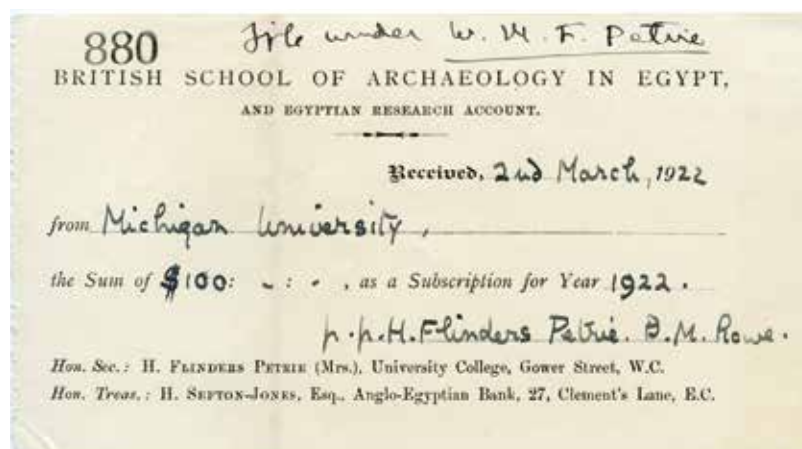 File under W. M. F. Petrie
880
BRITISH SCHOOL OF ARCHAEOLOGY IN EGYPT,
AND EGYPTIAN RESEARCH ACCOUNT.
Received, 2nd March, 1922
from Michigan University,
the Sum of $100: - : - , as a Subscription for Year 1922.
p.p. H. Flinders Petrie. D.M. Rowe.
Hon. Sec.: H. FLINDERS PETRIE (Mrs.), University College, Gower Street, W.C.
Hon. Treas.: H. SEFTON-JONES, Esq., Anglo-Egyptian Bank, 27, Clement's Lane, E.C.